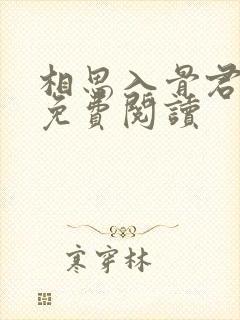 相思入骨君
免費閱讀
寒穿林